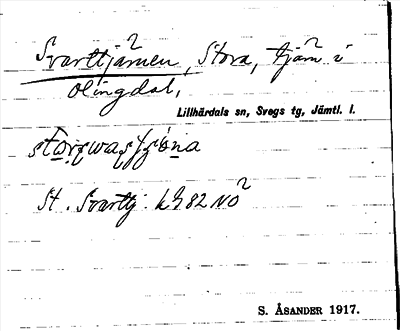 Svarttjärnen, Stora, tjärn i
Olingdal,
Lillhärdals sn, Svegs tg, Jämtl. l.
St. Svarttj. k982NO
S. ÅSANDER 1917.